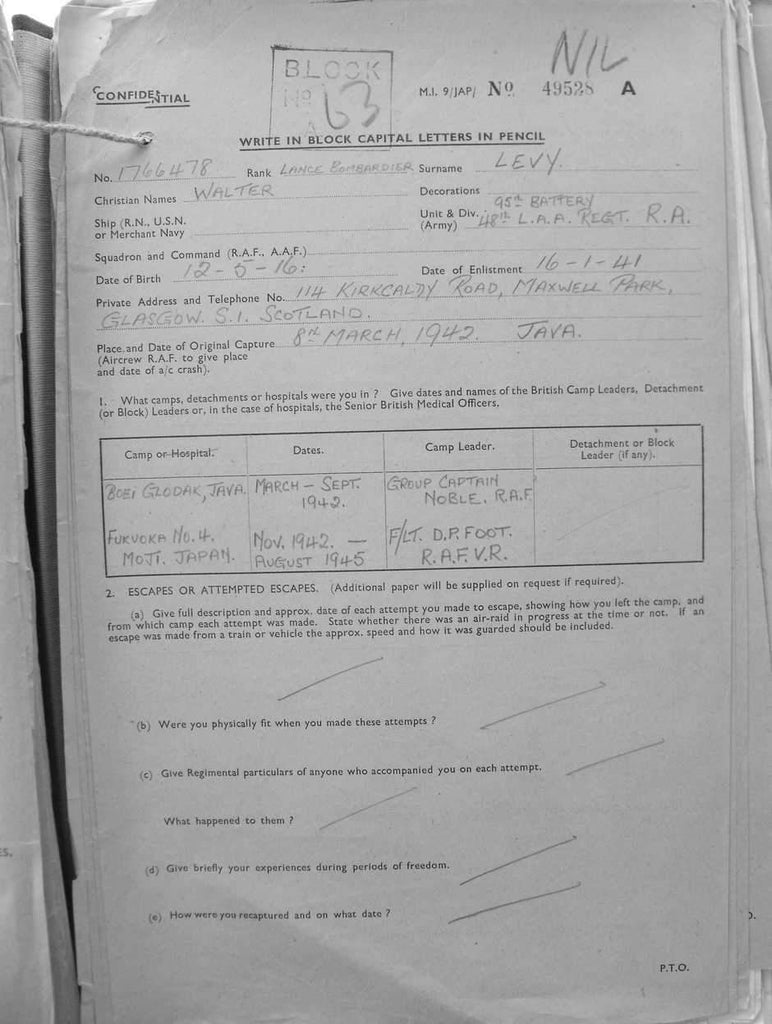 NIL
BLOCK
No 63
CONFIDENTIAL
M.I. 9/JAP/ No 49528 A
WRITE IN BLOCK CAPITAL LETTERS IN PENCIL
No. 1766478 Rank LANCE BOMBARDIER Surname LEVY.
Christian Names WALTER Decorations
Ship (R.N., U.S.N. or Merchant Navy
Unit & Div. (Army) 95th BATTERY 48th L.A.A. REGT. R.A.
Squadron and Command (R.A.F., A.A.F.)
Date of Birth 12-5-16: Date of Enlistment 16-1-41
Private Address and Telephone No. 114 KIRKCALDY ROAD, MAXWELL PARK,
GLASGOW. S.1. SCOTLAND.
Place and Date of Original Capture 8th MARCH, 1942. JAVA.
(Aircrew R.A.F. to give place
and date of a/c crash).
1. What camps, detachments or hospitals were you in ? Give dates and names of the British Camp Leaders, Detachment
(or Block) Leaders or, in the case of hospitals, the Senior British Medical Officers.
Camp or Hospital. Dates. Camp Leader. Detachment or Block
Leader (if any).
BOEI GLODAK, JAVA. MARCH - SEPT. GROUP CAPTAIN
1942. NOBLE. R.A.F
FUKUOKA No. 4. NOV. 1942. — F/LT. D.P. FOOT.
MOJI. JAPAN. AUGUST 1945 R.A.F.V.R.
2. ESCAPES OR ATTEMPTED ESCAPES. (Additional paper will be supplied on request if required).
(a) Give full description and approx. date of each attempt you made to escape, showing how you left the camp, and
from which camp each attempt was made. State whether there was an air-raid in progress at the time or not. If an
escape was made from a train or vehicle the approx. speed and how it was guarded should be included.
(b) Were you physically fit when you made these attempts ?
(c) Give Regimental particulars of anyone who accompanied you on each attempt.
What happened to them ?
(d) Give briefly your experiences during periods of freedom.
(e) How were you recaptured and on what date ?
P.T.O.